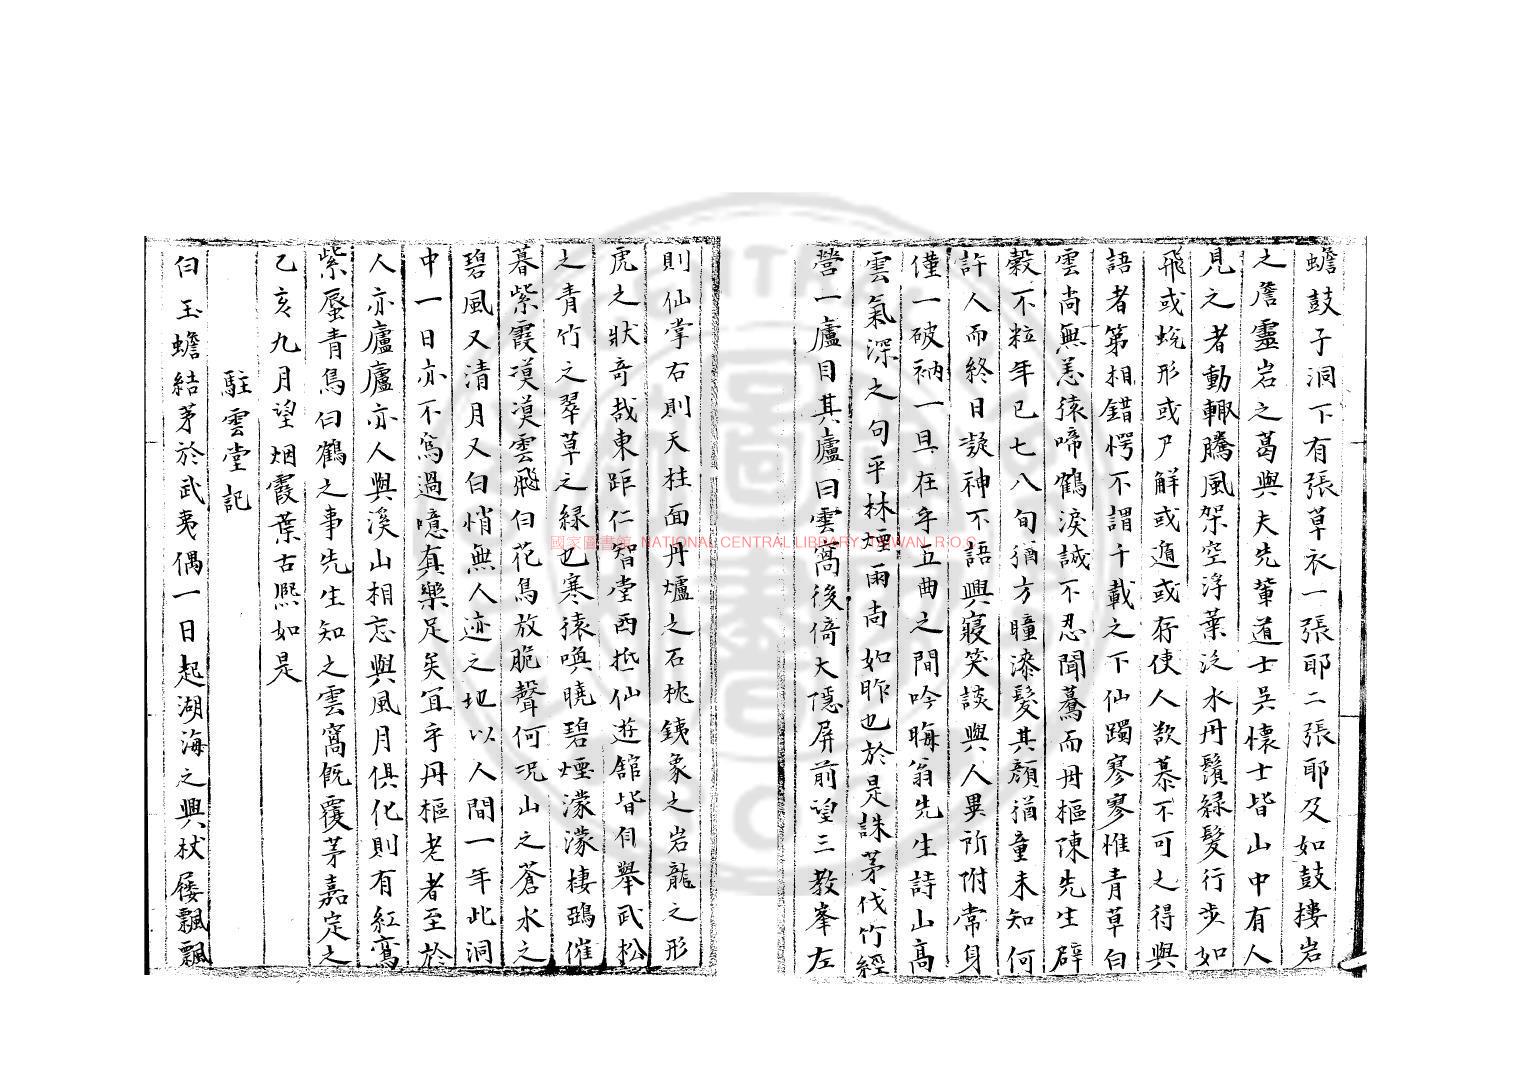 蟾鼓子洞下有張草衣一張耶二張耶及如鼓摟岩
之詹靈岩之葛與夫先輩道士吳懷士皆山中有人
見之者動輙騰風架空浮葉泛水丹鬚綠髮行步如
飛或蛻形或尸解或遁或存使人歎慕不可之得與
語者第相錯愕不謂千載之下仙躅寥寥惟青草白
雲尚無恙猿啼鶴淚誠不忍聞驀而丹樞陳先生辟
穀不粒年已七八旬猶方瞳漆髮其顏猶童未知何
許人而終日凝神不語興寢笑談與人異所附常身
僅一破衲一旦在乎五曲之間吟晦翁先生詩山高
雲氣深之句平林煙雨尚如昨也於是誅茅伐竹經
營一廬目其廬曰雲窩後倚大隱屏前望三教峯左
則仙掌右則天柱面丹爐之石枕銕象之岩龍之形
虎之狀奇哉東距仁智堂西抵仙遊舘皆有舉武松
之青竹之翠草之緑也寒猿喚曉碧煙濛濛棲鵶催
暮紫霞漠漠雲飛白花鳥放脆聲何况山之蒼水之
碧風又清月又白悄無人迹之地以人間一年此洞
中一日亦不為過噫真樂足矣宜乎丹樞老者至於
人亦廬廬亦人與溪山相忘與風月俱化則有紅鸞
紫蜃青鳥白鶴之事先生知之雲窩既覆茅嘉定之
乙亥九月望烟霞葉古熙如是
駐雲堂記
白玉蟾結茅於武夷偶一日起湖海之興杖屨飄飄
國家圖書館 NATIONAL CENTRAL LIBRARY, TAIWAN, R.O.C